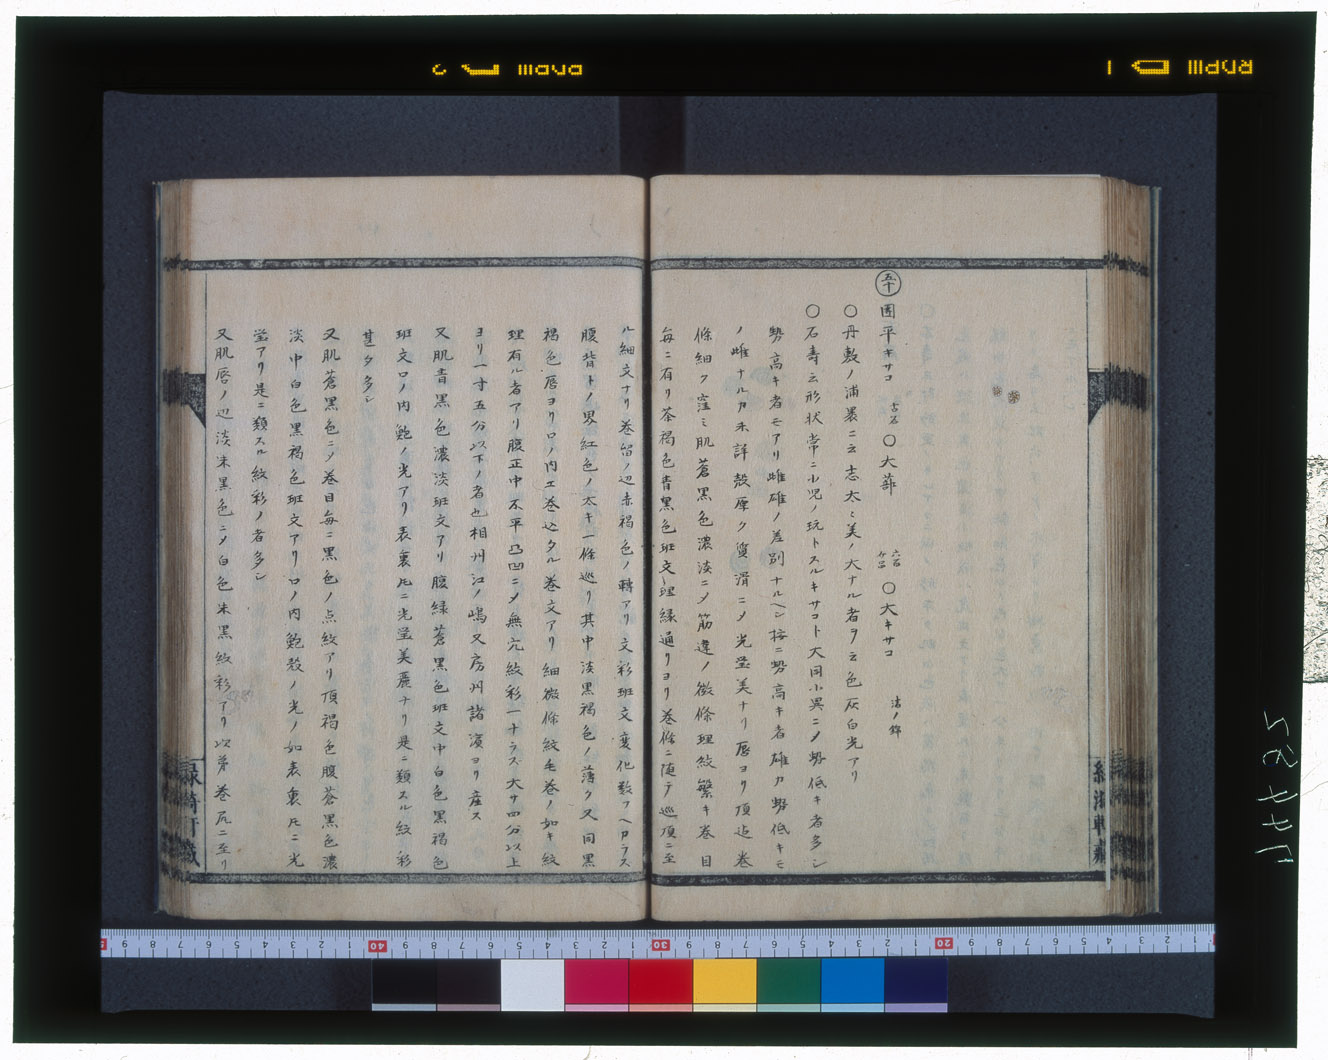 五十 團平キサコ 古名 〇大蘇 六百介品 〇大キサコ 渚ノ錦
〇丹敷ノ浦裏ニ云志太ミ美ノ大ナル者ヲ云色灰白光アリ
〇石壽云形状常ニ小児ノ玩トスルキサコト大同小異ニメ勢低キ者多シ
勢高キ者モアリ雌雄ノ差別ナルヘシ按ニ勢高キ者雄カ勢低キモ
ノ雌ナルカ未詳殻厚ク質滑ニメ光瑩美ナリ唇ヨリ頂迠巻
條細ク窪ミ肌蒼黒色濃淡ニメ筋違ノ微條理紋繁キ巻目
毎ニ有リ茶褐色青黒色班文理縁通リヨリ巻條ニ随テ巡頂ニ至
ル細文ナリ巻留ノ辺赤褐色ノ轉アリ文彩班文変化数フヘカラス
腹背トノ界紅色ノ太キ一條巡リ其中淡黒褐色ノ薄ク又同黒
褐色唇ヨリ口ノ内エ巻込タル巻文アリ細微條紋毛巻ノ如キ紋
理有ル者アリ腹正中不平凸凹ニメ無穴紋彩一ナラズ大サ四分以上
ヨリ一寸五分以下ノ者也相州江ノ嶋又房州諸濱ヨリ産ス
又肌青黒色濃淡班文アリ腹縁蒼黒色班文中白色黒褐色
班文口ノ内鮑ノ光アリ表裏圧ニ光瑩美麗ナリ是ニ類スル紋彩
甚タ多シ
又肌蒼黒色ニメ巻目毎ニ黒色ノ点紋アリ頂褐色腹蒼黒色濃
淡中白色黒褐色班文アリ口ノ内鮑殻ノ光ノ如表裏圧ニ光
瑩アリ是ニ類スル紋彩ノ者多シ
又肌唇ノ辺淡朱黒色ニメ白色朱黒紋彩アリ以第巻尻ニ至リ